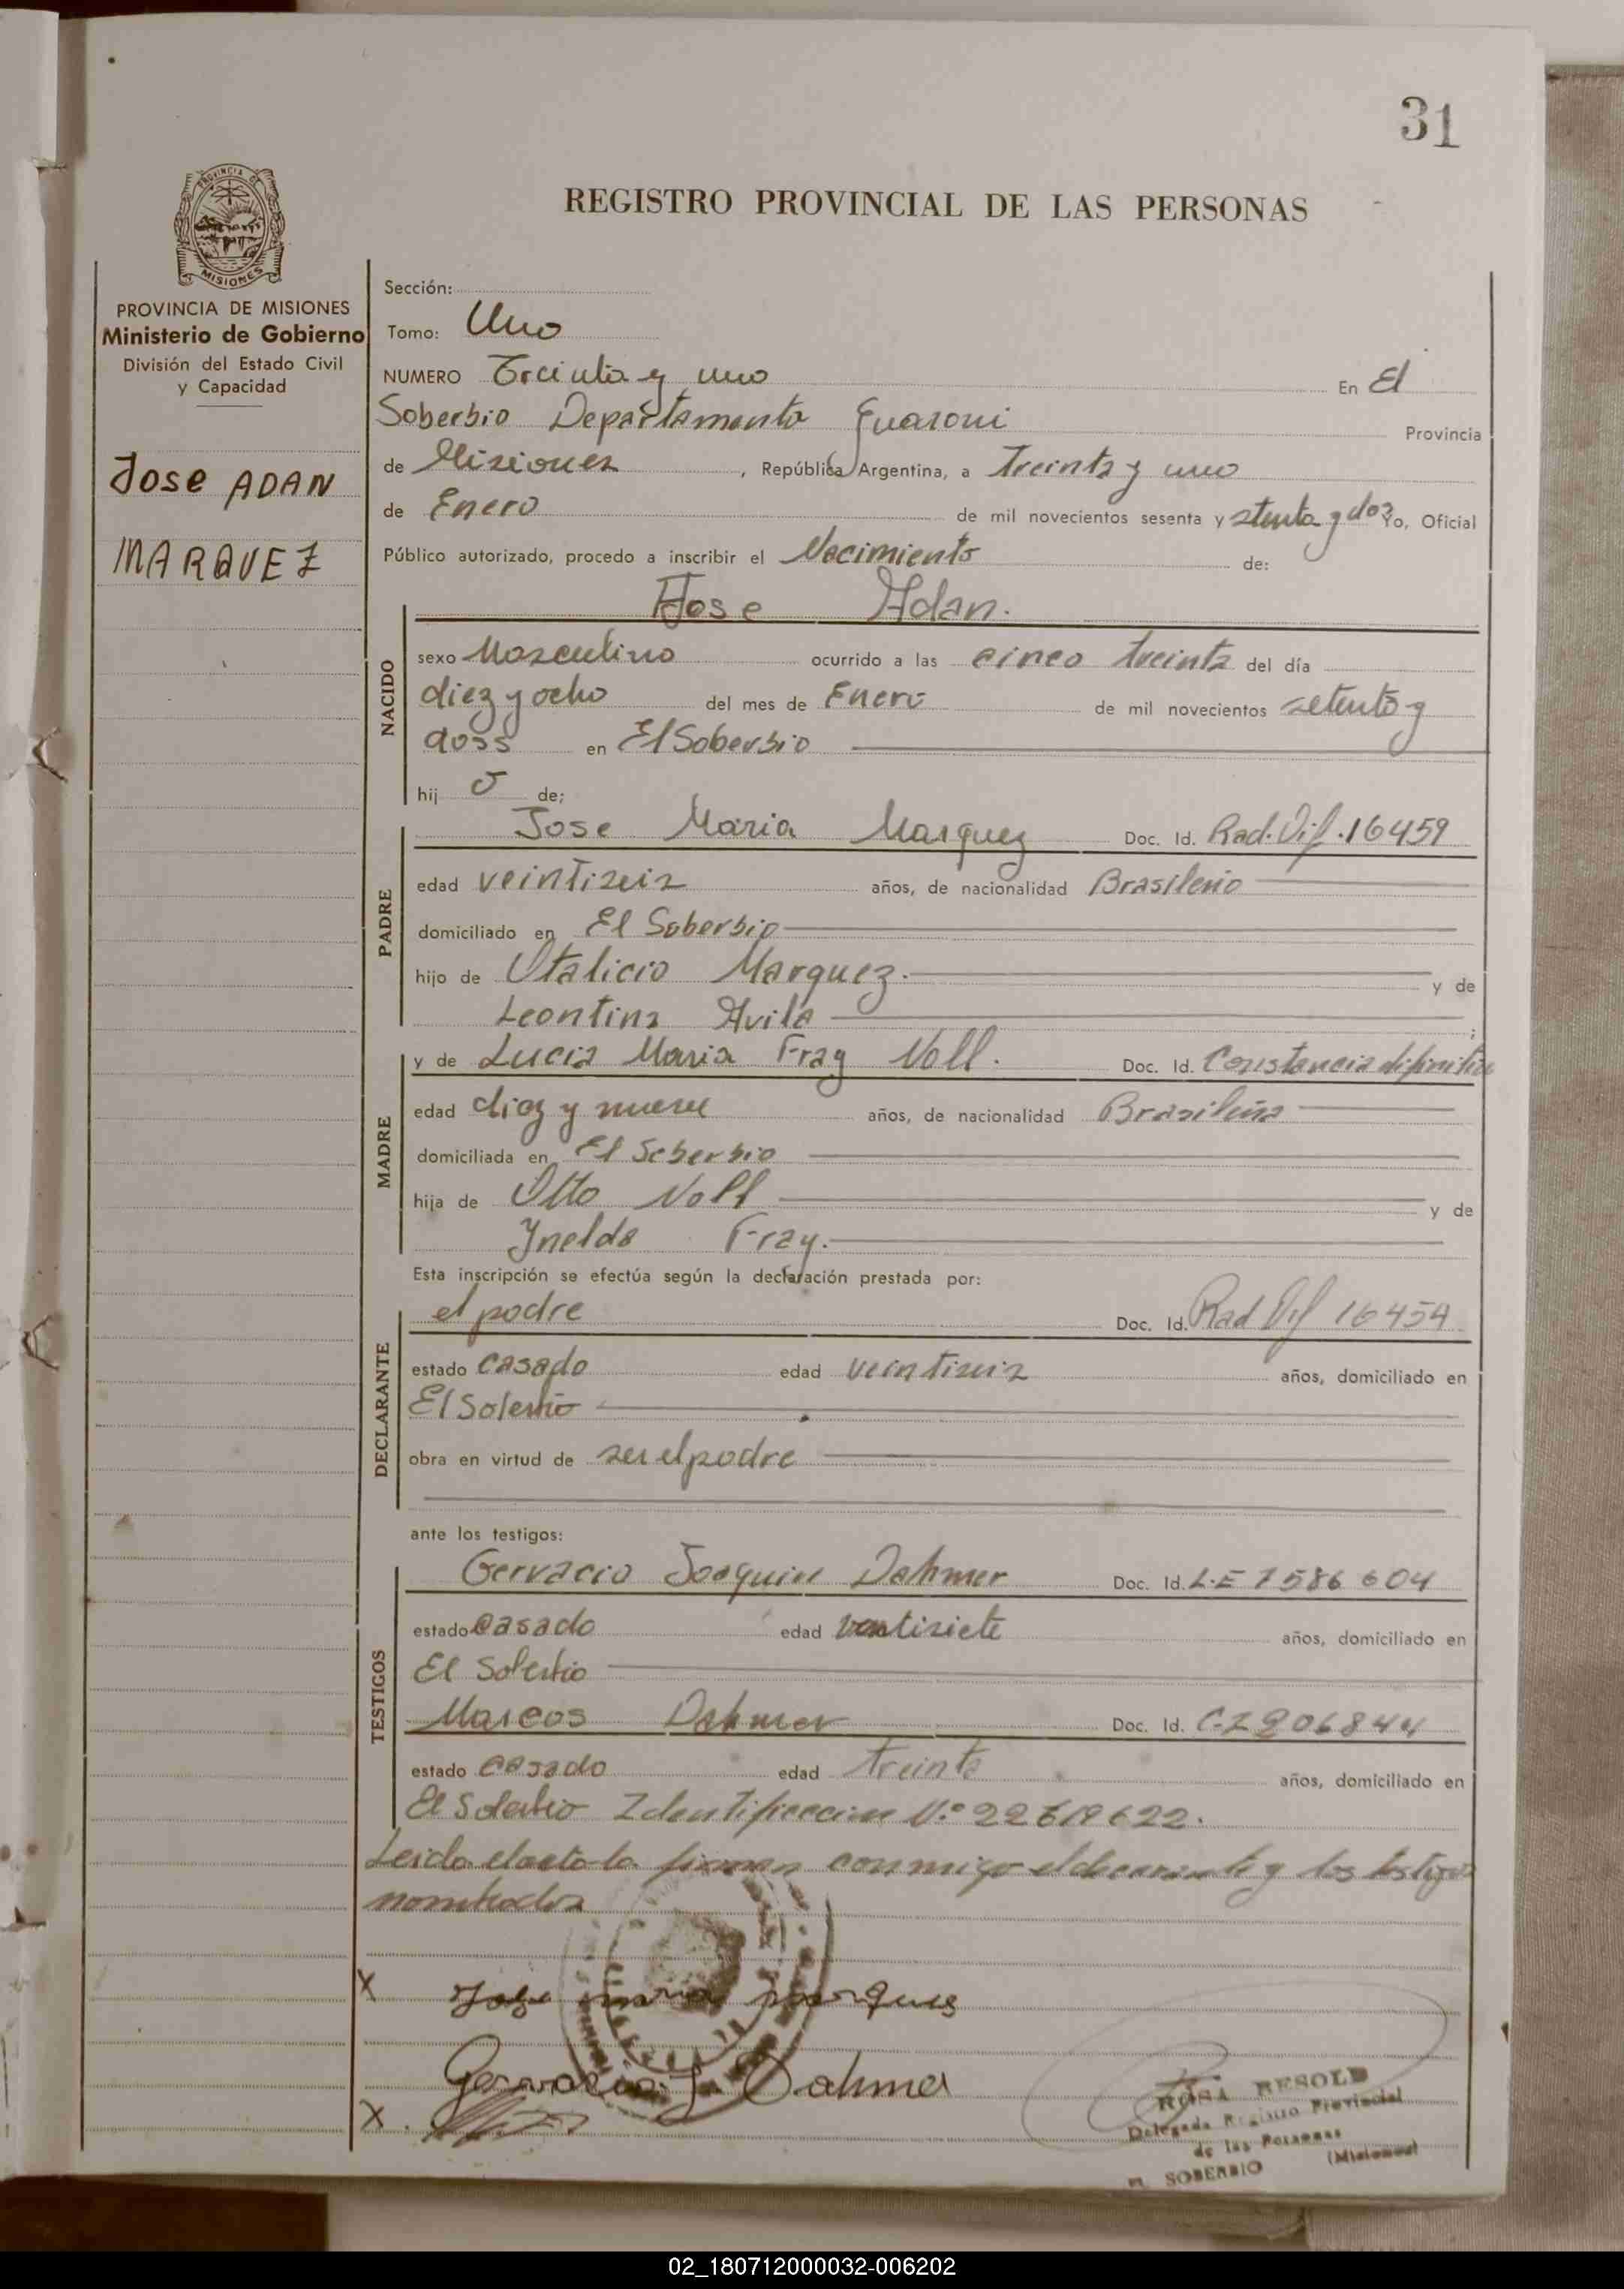 31
REGISTRO PROVINCIAL DE LAS PERSONAS
PROVINCIA DE
MISIONES
PROVINCIA DE MISIONES
Ministerio de Gobierno
División del Estado Civil
y Capacidad
Jose ADAN
MARQUEZ
Sección:
Tomo: Uno
NUMERO Treinta y uno En El
Soberbio Departamento Guarani Provincia
de Misiones, República Argentina, a Treinta y uno
de Enero de mil novecientos sesenta y setenta y dos Yo, Oficial
Público autorizado, procedo a inscribir el Nacimiento de:
Jose Adan.
NACIDO
sexo Masculino ocurrido a las cinco treinta del día
diez y ocho del mes de Enero de mil novecientos setenta y
doss en El Soberbio
hij o de;
PADRE
Jose Maria Marquez Doc. Id. Rad. Dif. 16459
edad veintiseis años, de nacionalidad Brasileño
domiciliado en El Soberbio
hijo de Otalicio Marquez. y de
Leontina Avila ;
MADRE
y de Lucia Maria Fray Noll. Doc. Id. Constancia difinitiva
edad diez y nueve años, de nacionalidad Brasileña
domiciliada en El Soberbio
hija de Otto Noll y de
Ynelda Fray.
Esta inscripción se efectúa según la declaración prestada por:
DECLARANTE
el padre Doc. Id. Rad Dif 16454
estado casado edad veintiseis años, domiciliado en
El Soberbio
obra en virtud de ser el padre
ante los testigos:
TESTIGOS
Gervacio Joaquin Dahmer Doc. Id. L.E 7586604
estado casado edad ventisiete años, domiciliado en
El Soberbio
Marcos Dahmer Doc. Id. C.I 206844
estado casado edad treinta años, domiciliado en
El Soberbio Identificacion N.º
Leida el acta la firman conmigo el decarante y los testigos
nombrados
X Jose maria marques
Gervacio J. Dahmer
X
ROSA RESOLD
Delegada Registro Provincial
de las Personas
EL SOBERBIO (Misiones)
02_180712000032-006202